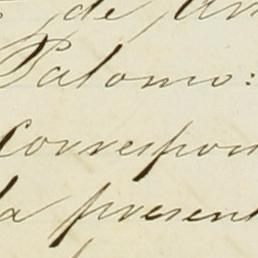 de
Palomo:
Correspon
la present